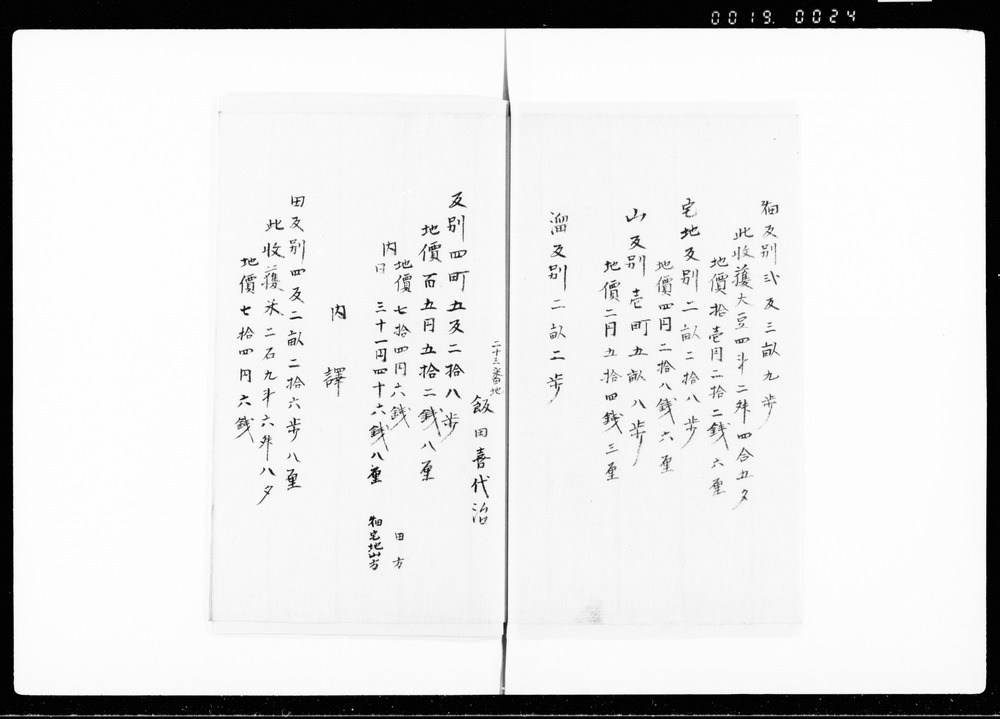 0019. 0024
畑反別弐反三畝九歩
此収穫大豆四斗二升四合五夕
地價拾壱円二拾二銭六厘
宅地反別二畝二拾八歩
地價四円二拾八銭六厘
山反別壱町五畝八歩
地價二円五拾四銭三厘
溜反別二畝二歩
二十三番地
飯田喜代治
反別四町五反二拾八歩
地價百五円五拾二銭八厘
内
地價七拾四円六銭 田方
日 三十一円四十六銭八厘 畑宅地山方
内譯
田反別四反二畝二拾六歩八厘
此收穫米二石九斗六升八夕
地價七拾四円六銭